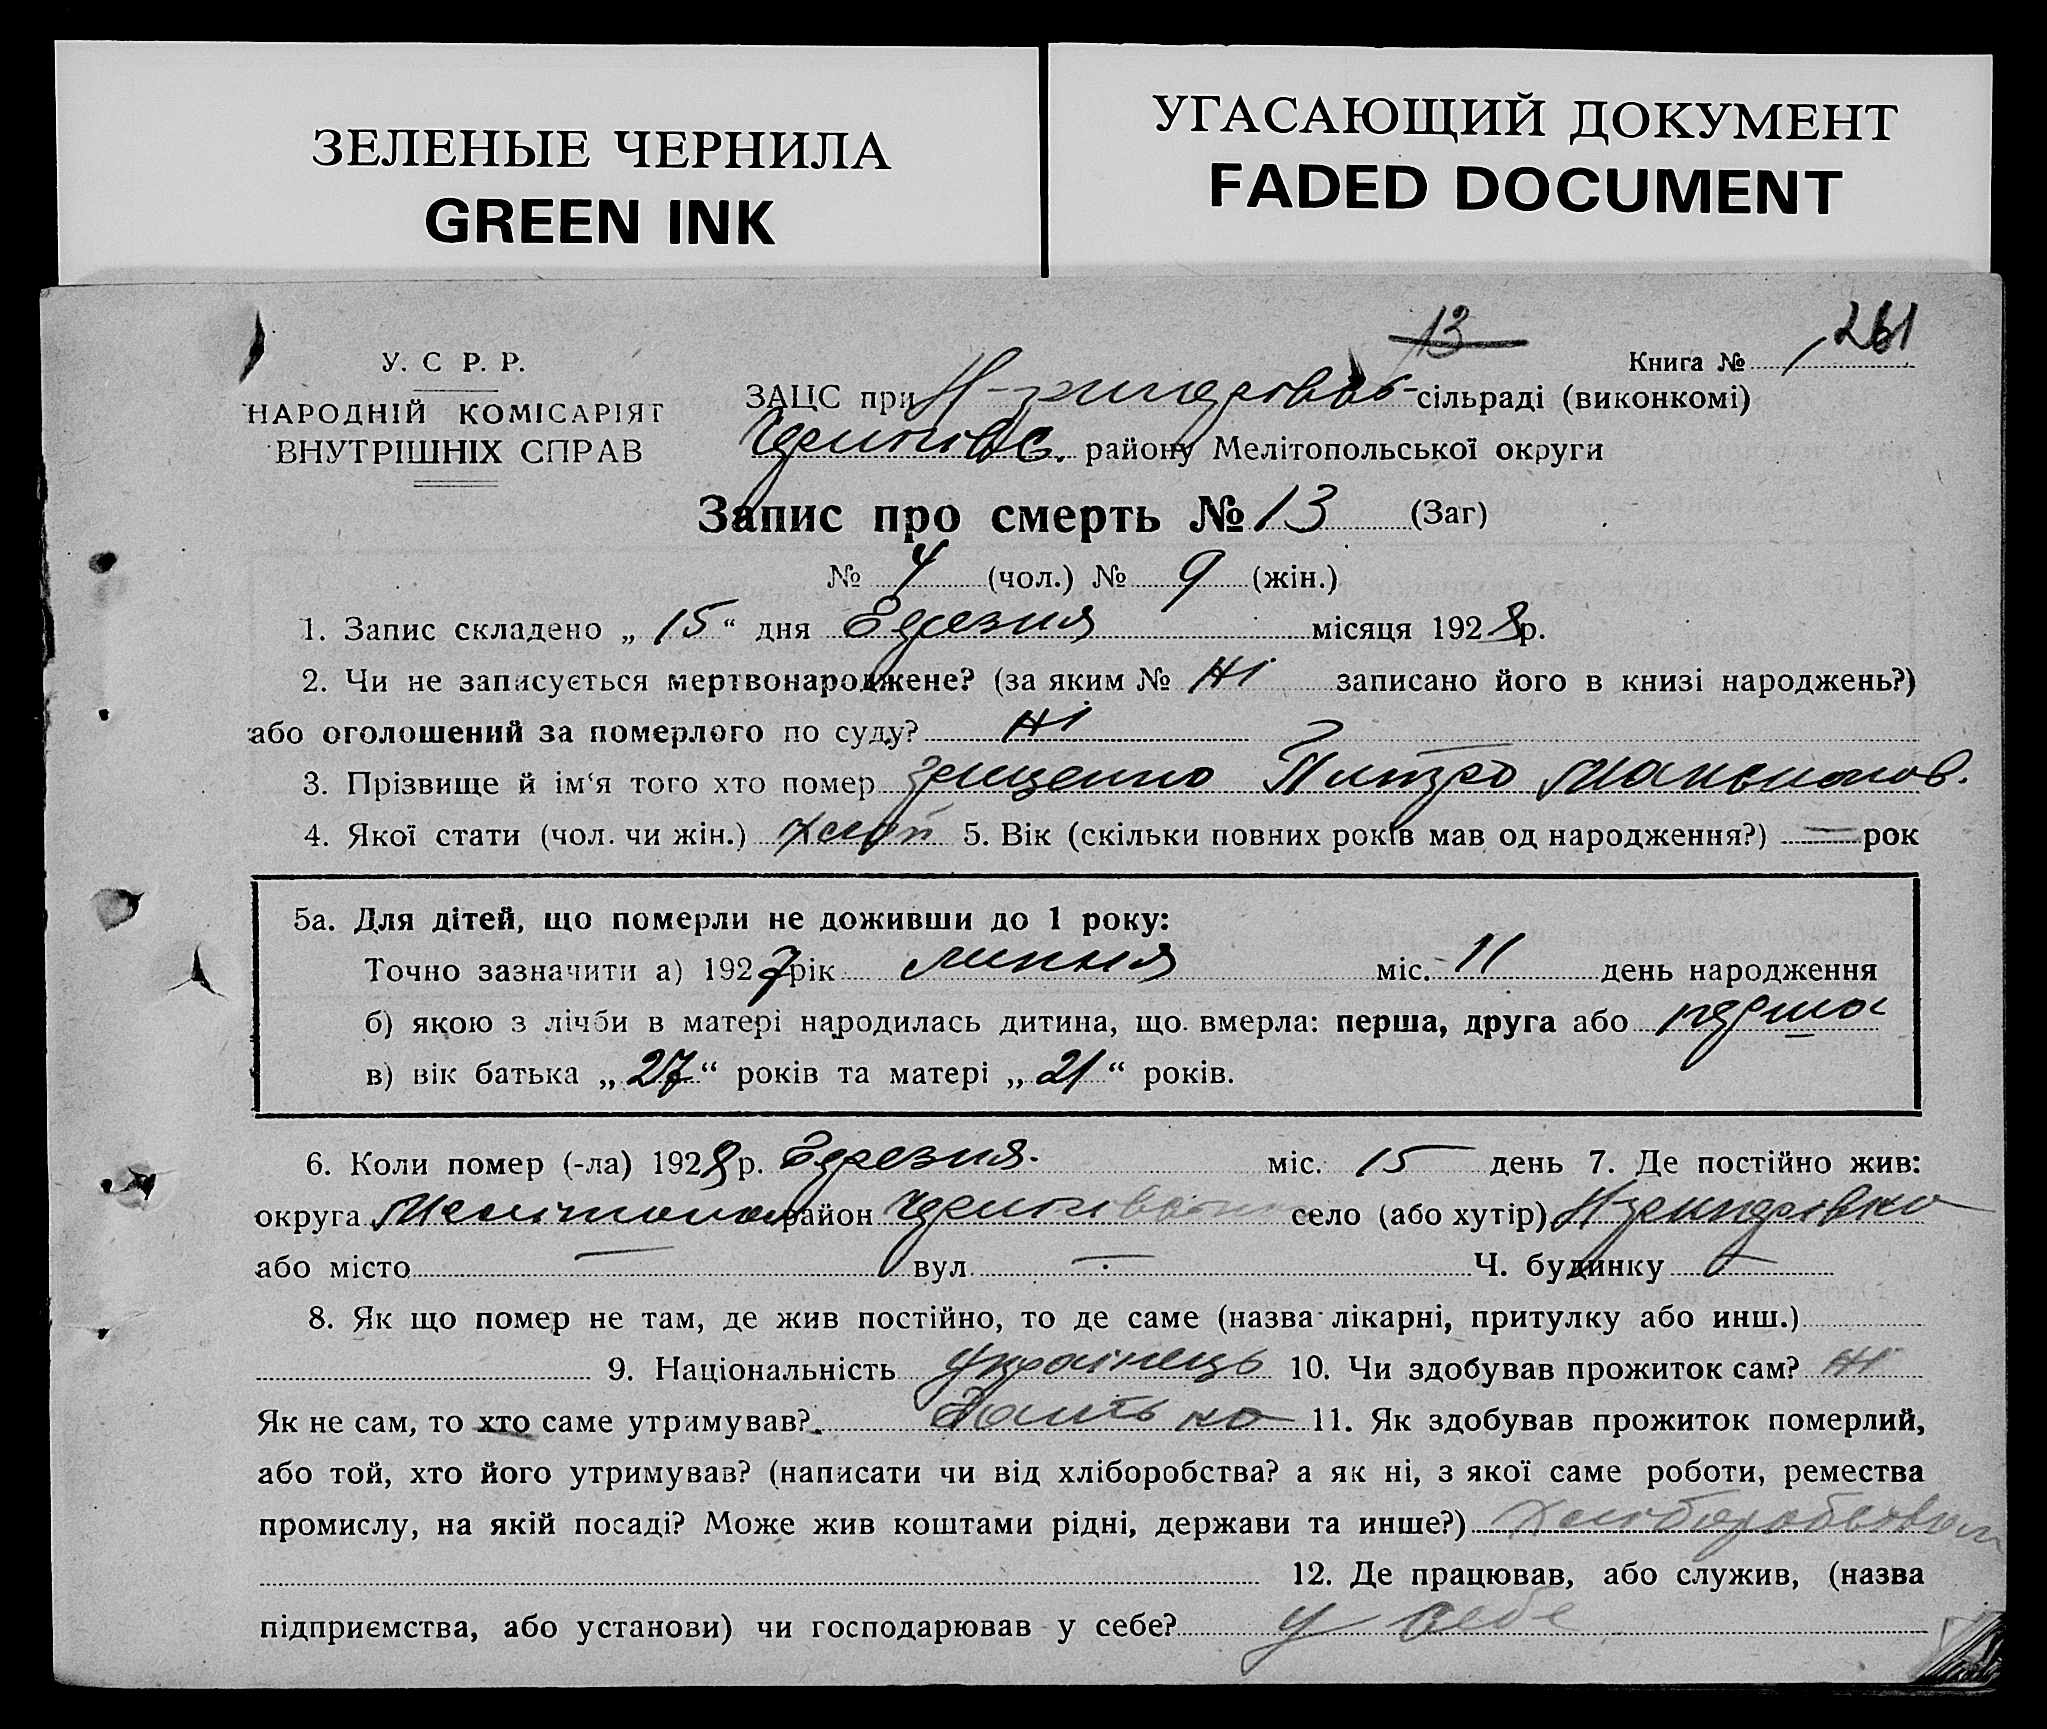 ЗЕЛЕНЫЕ ЧЕРНИЛА
GREEN INK
УГАСАЮЩИЙ ДОКУМЕНТ
FADED DOCUMENT
13
261
У. С Р. Р.
НАРОДНІЙ КОМІСАРІЯТ
ВНУТРІШНІХ СПРАВ
Книга № 1
ЗАЦС при сільраді (виконкомі)
району Мелітопольської округи
Запис про смерть № 13 (Заг)
№ 4 (чол.) № 9 (жін.)
1. Запис складено „ 15 “ дня березня місяця 1928 р.
2. Чи не записується мертвонароджене? (за яким № Ні записано його в книзі народжень?)
або оголошений за померлого по суду? Ні
3. Прізвище й ім‘я того хто помер
4. Якої стати (чол. чи жін.) 5. Вік (скільки повних років мав од народження?) — рок
5а. Для дітей, що померли не доживши до 1 року:
Точно зазначити а) 1927 рік липня міс. 11 день народження
б) якою з лічби в матері народилась дитина, що вмерла: перша, друга або перша
в) вік батька „ 27 “ років та матері „ 21 “ років.
6. Коли помер (-ла) 1928 р. березня міс. 15 день 7. Де постійно жив:
округа район село (або хутір)
або місто — вул. — Ч. будинку —
8. Як що помер не там, де жив постійно, то де саме (назва лікарні, притулку або инш.)
9. Національність Українець 10. Чи здобував прожиток сам? Ні
Як не сам, то хто саме утримував? Батько 11. Як здобував прожиток померлий,
або той, хто його утримував? (написати чи від хліборобства? а як ні, з якої саме роботи, ремества
промислу, на якій посаді? Може жив коштами рідні, держави та инше?)
12. Де працював, або служив, (назва
підприємства, або установи) чи господарював у себе? у себе